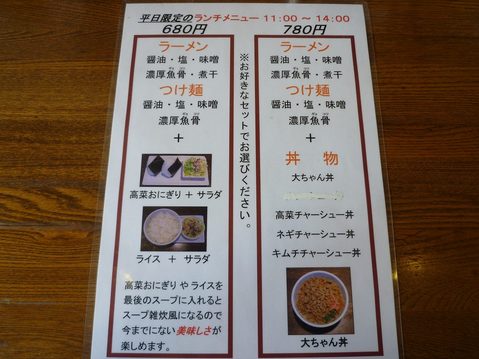 平日限定のランチメニュー 11:00 ～ 14:00
680円
ラーメン
醤油・塩・味噌
濃厚魚骨・煮干
つけ麺
醤油・塩・味噌
濃厚魚骨
＋
高菜おにぎり ＋ サラダ
ライス ＋ サラダ
高菜おにぎり や ライスを
最後のスープに入れると
スープ雑炊風になるので
今までにない美味しさが
楽しめます。
※お好きなセットでお選びください。
780円
ラーメン
醤油・塩・味噌
濃厚魚骨・煮干
つけ麺
醤油・塩・味噌
濃厚魚骨
＋
丼 物
大ちゃん丼
高菜チャーシュー丼
ネギチャーシュー丼
キムチチャーシュー丼
大ちゃん丼